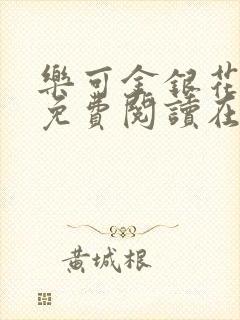 樂可金銀花
免費閱讀在
黃城根